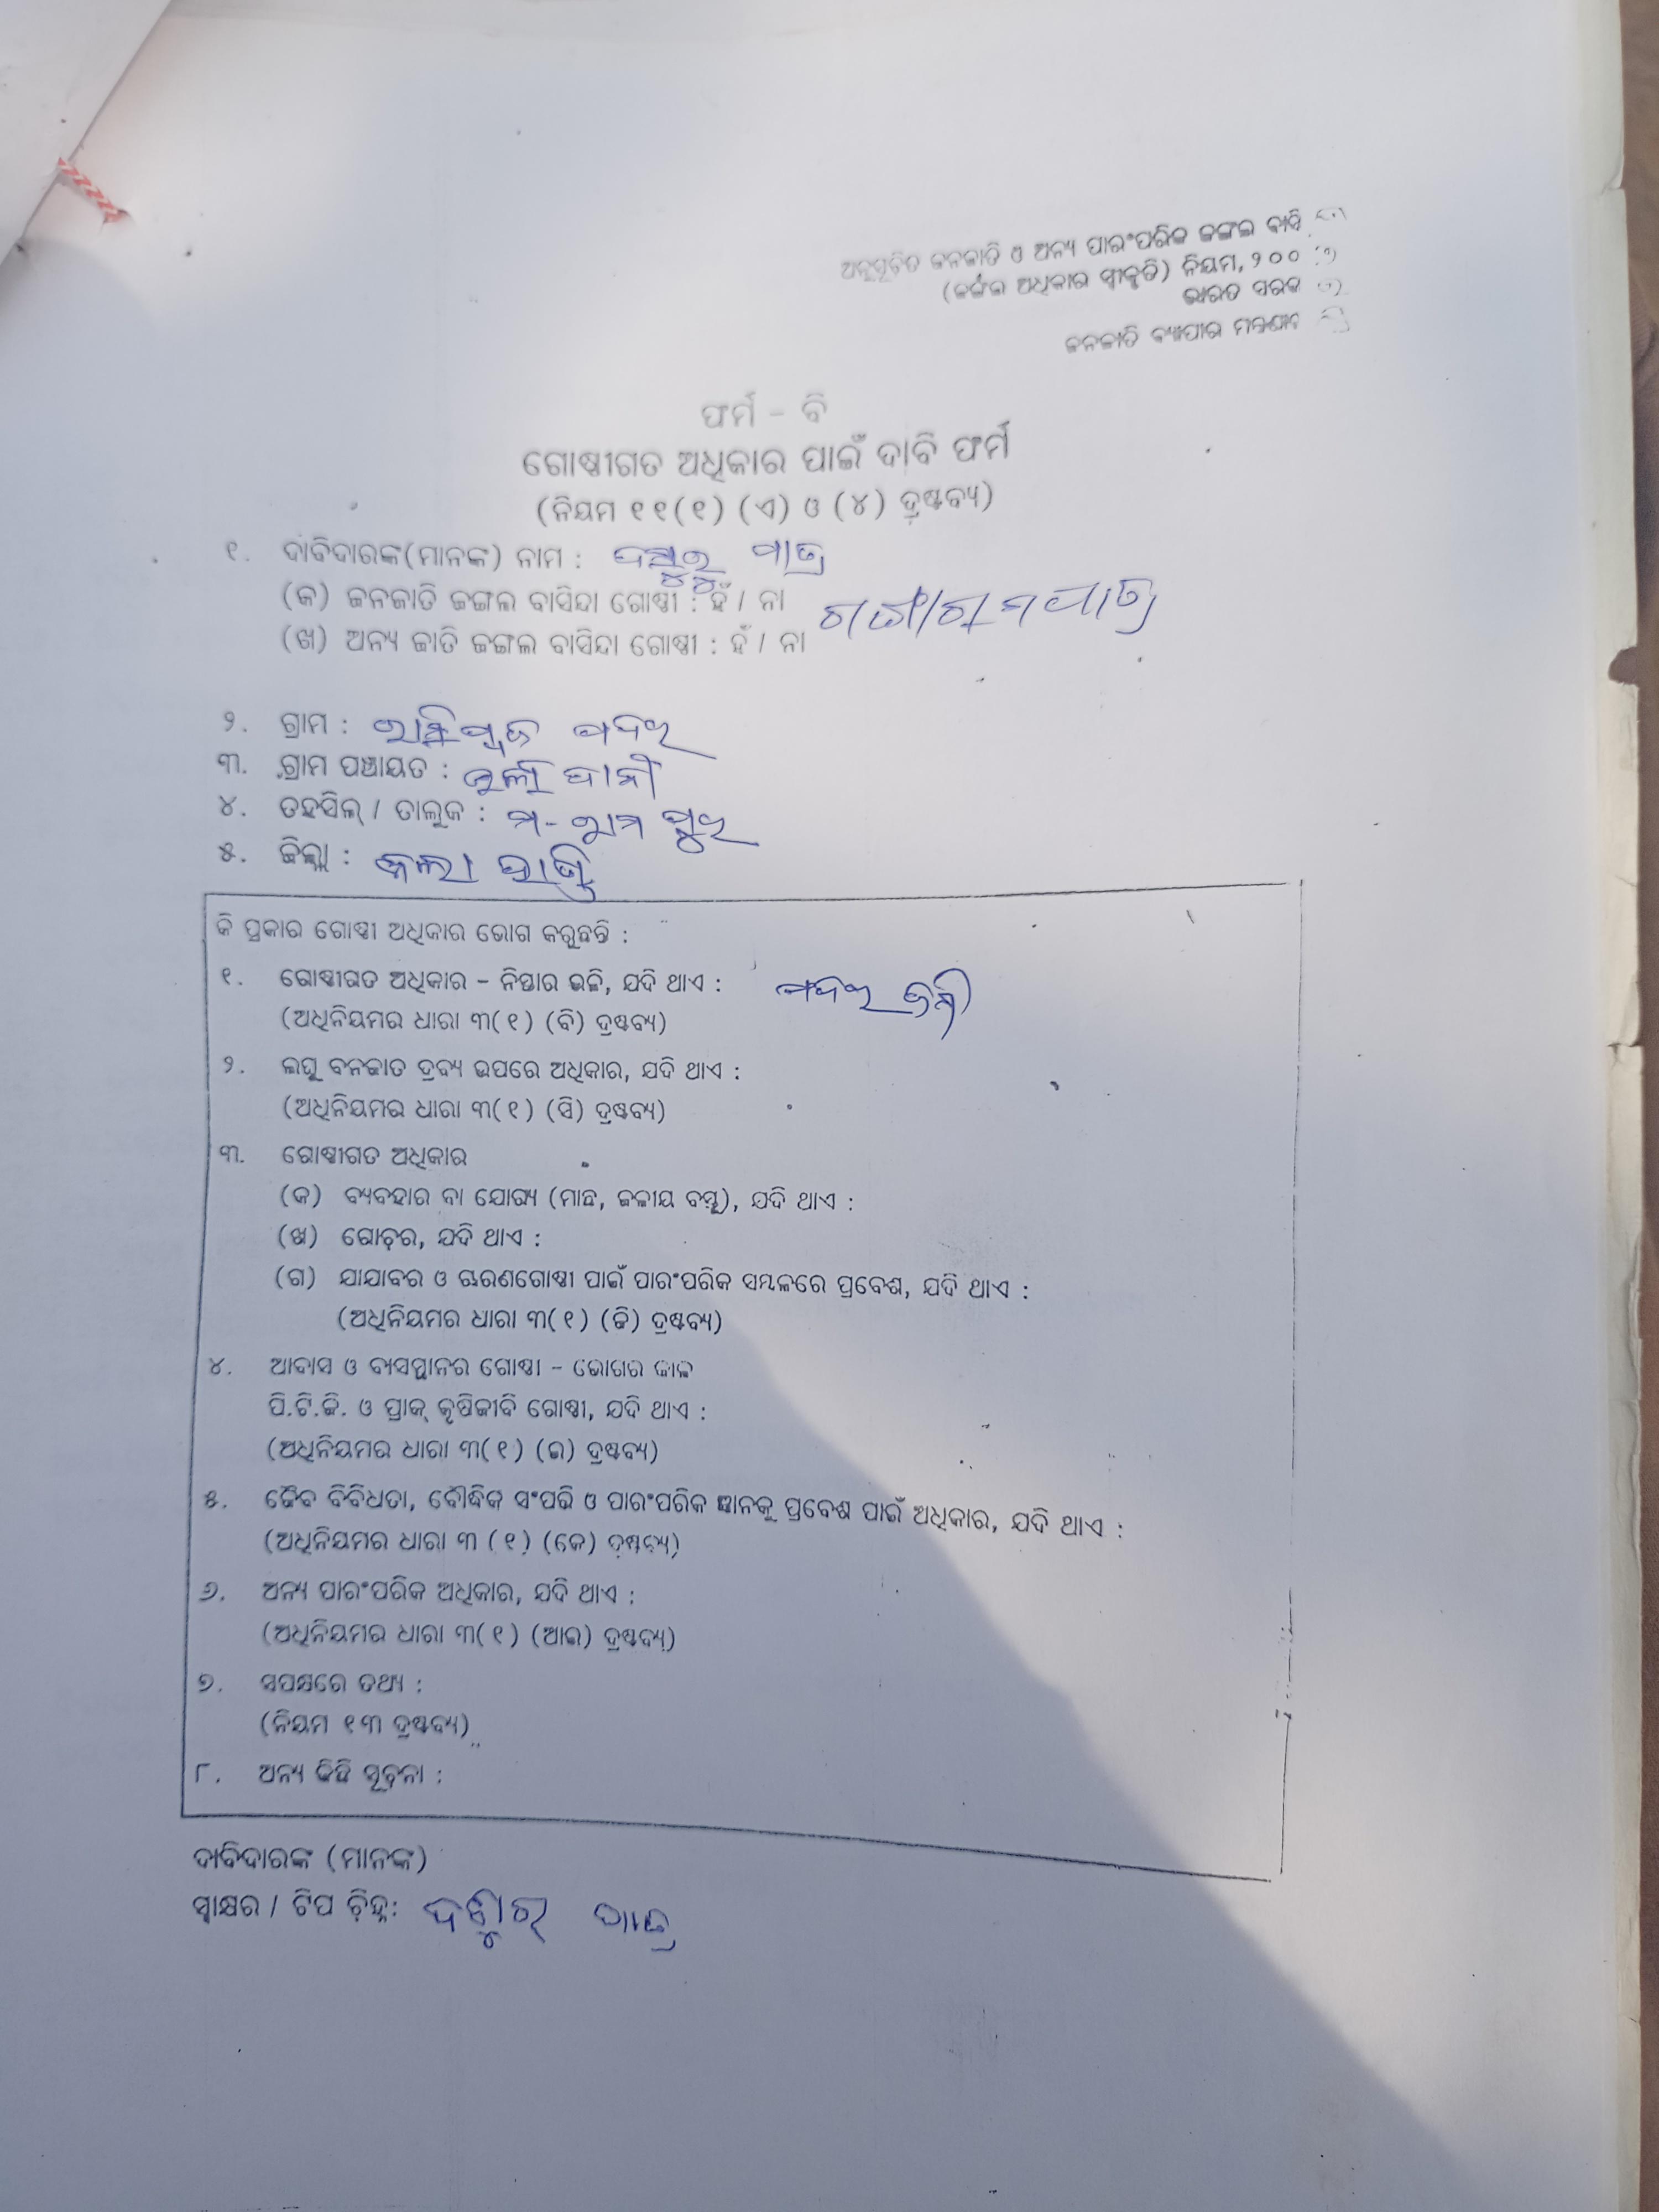 ଅନୁସୂଚିତ ଜନଜାତି ଓ ଅନ୍ୟ ପାରଂପରିକ ଜଙ୍ଗଲ ବାସି
(ଜଙ୍ଗଲ ଅଧିକାର ସ୍ୱୀକୃତି) ନିୟମ, ୨୦୦
ଭାରତ ସରକ
ଜନଜାତି ବ୍ୟାପାର ମନ୍ତ୍ରଣାଳ
ଫର୍ମ – ବି
ଗୋଷ୍ଠୀଗତ ଅଧିକାର ପାଇଁ ଦାବି ଫର୍ମ
(ନିୟମ ୧୧(୧) (ଏ) ଓ (୪) ଦ୍ରଷ୍ଟବ୍ୟ)
୧. ଦାବିଦାରଙ୍କ(ମାନଙ୍କ) ନାମ : ପାତ୍ର
(କ) ଜନଜାତି ଜଙ୍ଗଲ ବାସିନ୍ଦା ଗୋଷ୍ଠୀ : ହଁ / ନା
(ଖ) ଅନ୍ୟ ଜାତି ଜଙ୍ଗଲ ବାସିନ୍ଦା ଗୋଷ୍ଠୀ : ହଁ / ନା
୨. ଗ୍ରାମ :
୩. ଗ୍ରାମ ପଞ୍ଚାୟତ :
୪. ତହସିଲ୍ / ତାଲୁକ : ମ- ରାମ ପୁର
୫. ଜିଲ୍ଲା : କଳା ହାଣ୍ଡି
କି ପ୍ରକାର ଗୋଷ୍ଠୀ ଅଧିକାର ଭୋଗ କରୁଛନ୍ତି :
୧. ଗୋଷ୍ଠୀଗତ ଅଧିକାର – ନିସ୍ତାର ଭଳି, ଯଦି ଥାଏ :
(ଅଧିନିୟମର ଧାରା ୩(୧) (ବି) ଦ୍ରଷ୍ଟବ୍ୟ)
୨. ଲଘୁ ବନଜାତ ଦ୍ରବ୍ୟ ଉପରେ ଅଧିକାର, ଯଦି ଥାଏ :
(ଅଧିନିୟମର ଧାରା ୩(୧) (ସି) ଦ୍ରଷ୍ଟବ୍ୟ)
୩. ଗୋଷ୍ଠୀଗତ ଅଧିକାର
(କ) ବ୍ୟବହାର ବା ଯୋଗ୍ୟ (ମାଛ, ଜଳୀୟ ବସ୍ତୁ), ଯଦି ଥାଏ :
(ଖ) ଗୋଚର, ଯଦି ଥାଏ :
(ଗ) ଯାଯାବର ଓ ଚାରଣଗୋଷ୍ଠୀ ପାଇଁ ପାରଂପରିକ ସମ୍ବଳରେ ପ୍ରବେଶ, ଯଦି ଥାଏ :
(ଅଧିନିୟମର ଧାରା ୩(୧) (ଡି) ଦ୍ରଷ୍ଟବ୍ୟ)
୪. ଆବାସ ଓ ବାସସ୍ଥାନର ଗୋଷ୍ଠୀ – ଭୋଗର କାଳ
ପି.ଟି.ଜି. ଓ ପ୍ରାକ୍ କୃଷିଜୀବି ଗୋଷ୍ଠୀ, ଯଦି ଥାଏ :
(ଅଧିନିୟମର ଧାରା ୩(୧) (ଇ) ଦ୍ରଷ୍ଟବ୍ୟ)
୫. ଜୈବ ବିବିଧତା, ବୌଦ୍ଧିକ ସଂପତ୍ତି ଓ ପାରଂପରିକ ଜ୍ଞାନକୁ ପ୍ରବେଶ ପାଇଁ ଅଧିକାର, ଯଦି ଥାଏ :
(ଅଧିନିୟମର ଧାରା ୩ (୧) (କେ) ଦ୍ରଷ୍ଟବ୍ୟ)
୬. ଅନ୍ୟ ପାରଂପରିକ ଅଧିକାର, ଯଦି ଥାଏ :
(ଅଧିନିୟମର ଧାରା ୩(୧) (ଆଇ) ଦ୍ରଷ୍ଟବ୍ୟ)
୭. ସପକ୍ଷରେ ତଥ୍ୟ :
(ନିୟମ ୧୩ ଦ୍ରଷ୍ଟବ୍ୟ)
୮. ଅନ୍ୟ କିଛି ସୂଚନା :
ଦାବିଦାରଙ୍କ (ମାନଙ୍କ)
ସ୍ୱାକ୍ଷର / ଟିପ ଚିହ୍ନ: ପାତ୍ର